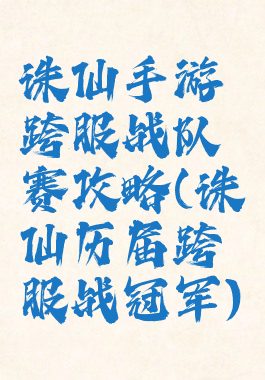 诛仙手游
跨服战队
赛攻略(诛
仙历届跨
服战冠军)